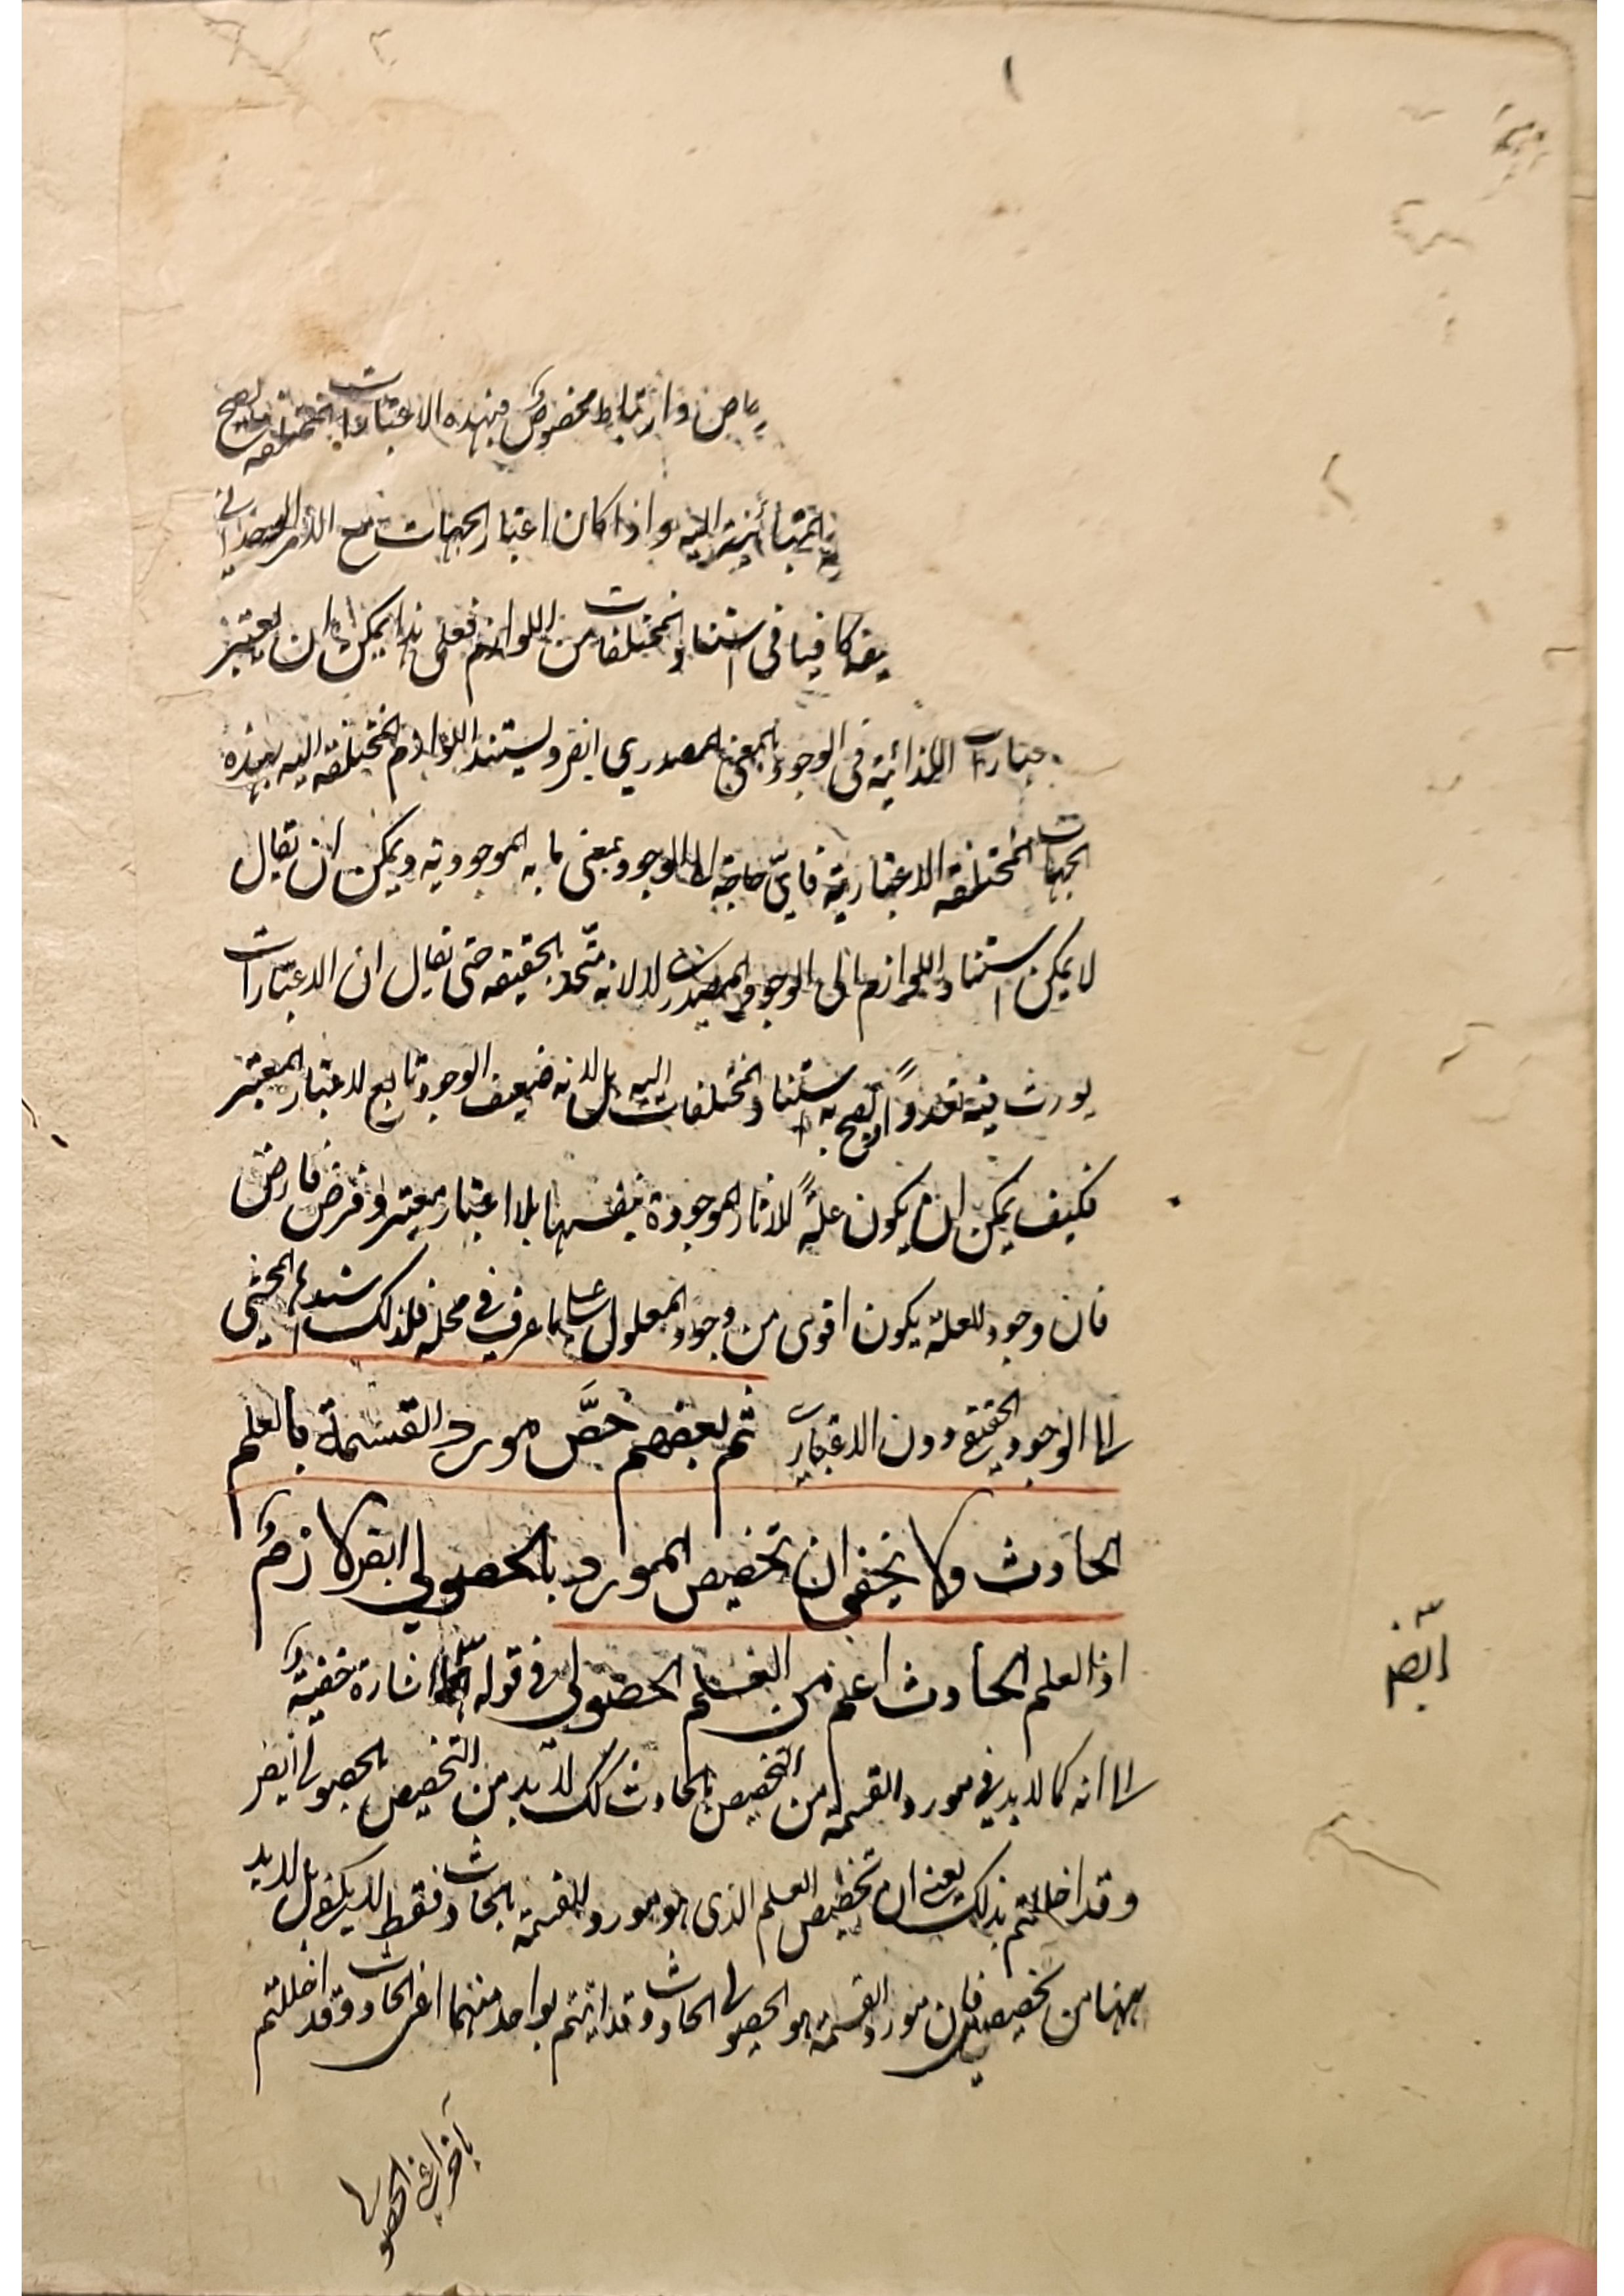 ١
خاص وارتباط مخصوص فبهذه الاعتبارات المختلفة يصح
المتبائنة اليه واذا كان اعتبار الجهات مع الامر الوحداني
كافيا في استناد المختلفات من اللوازم فعلى هذا يمكن ان يعتبر
الاعتبارات الزائدة في الوجود بالمعنى المصدري ايضر ويستند اللوازم المختلفة اليه بهذه
الجهات المختلفة الاعتبارية فاي حاجة الى الوجود بمعنى ما به الموجودية ويمكن ان يقال
لا يمكن استناد اللوازم الى الوجود المصدري لا لانه متحد بالحقيقة حتى يقال ان الاعتبارات
يورث فيه تعددًا يصح به استناد المختلفات اليه بل لانه ضعيف الوجود تابع لاعتبار المعتبر
فكيف يمكن ان يكون علةً للاثار الموجودة بنفسها بلا اعتبار معتبر وفرض فارض
فان وجود العلة يكون اقوى من وجود المعلول على ما عرف في محله فلذلك اسنده المحشي
الى الوجود الحقيقي دون الاعتباري ثم بعضهم خصَّ مورد القسمة بالعلم
الحادث ولا يخفى ان تخصيص المورد بالحصولي ايضر لازم
اذ العلم الحادث اعم من العلم الحصولي وفي قوله ايضر اشارة خفية
ايضر
الى انه كما لا بد في مورد القسمة من التخصيص بالحادث كك لا بد من التخصيص بالحصولي ايضر
وقد اخللتم بذلك يعني ان تخصيص العلم الذي هو مورد القسمة بالحادث فقط لا يكفي بل لا بد
ههنا من تخصيصين فان مورد القسمة هو الحصولي الحادث وقد اتيتم بواحد منهما اعني الحادث وقد اخللتم
بآخر اعني الحصولي